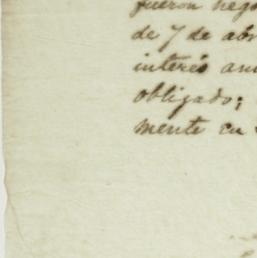 fueron nego
de 7 de abr
interés anu
obligado;
mente en